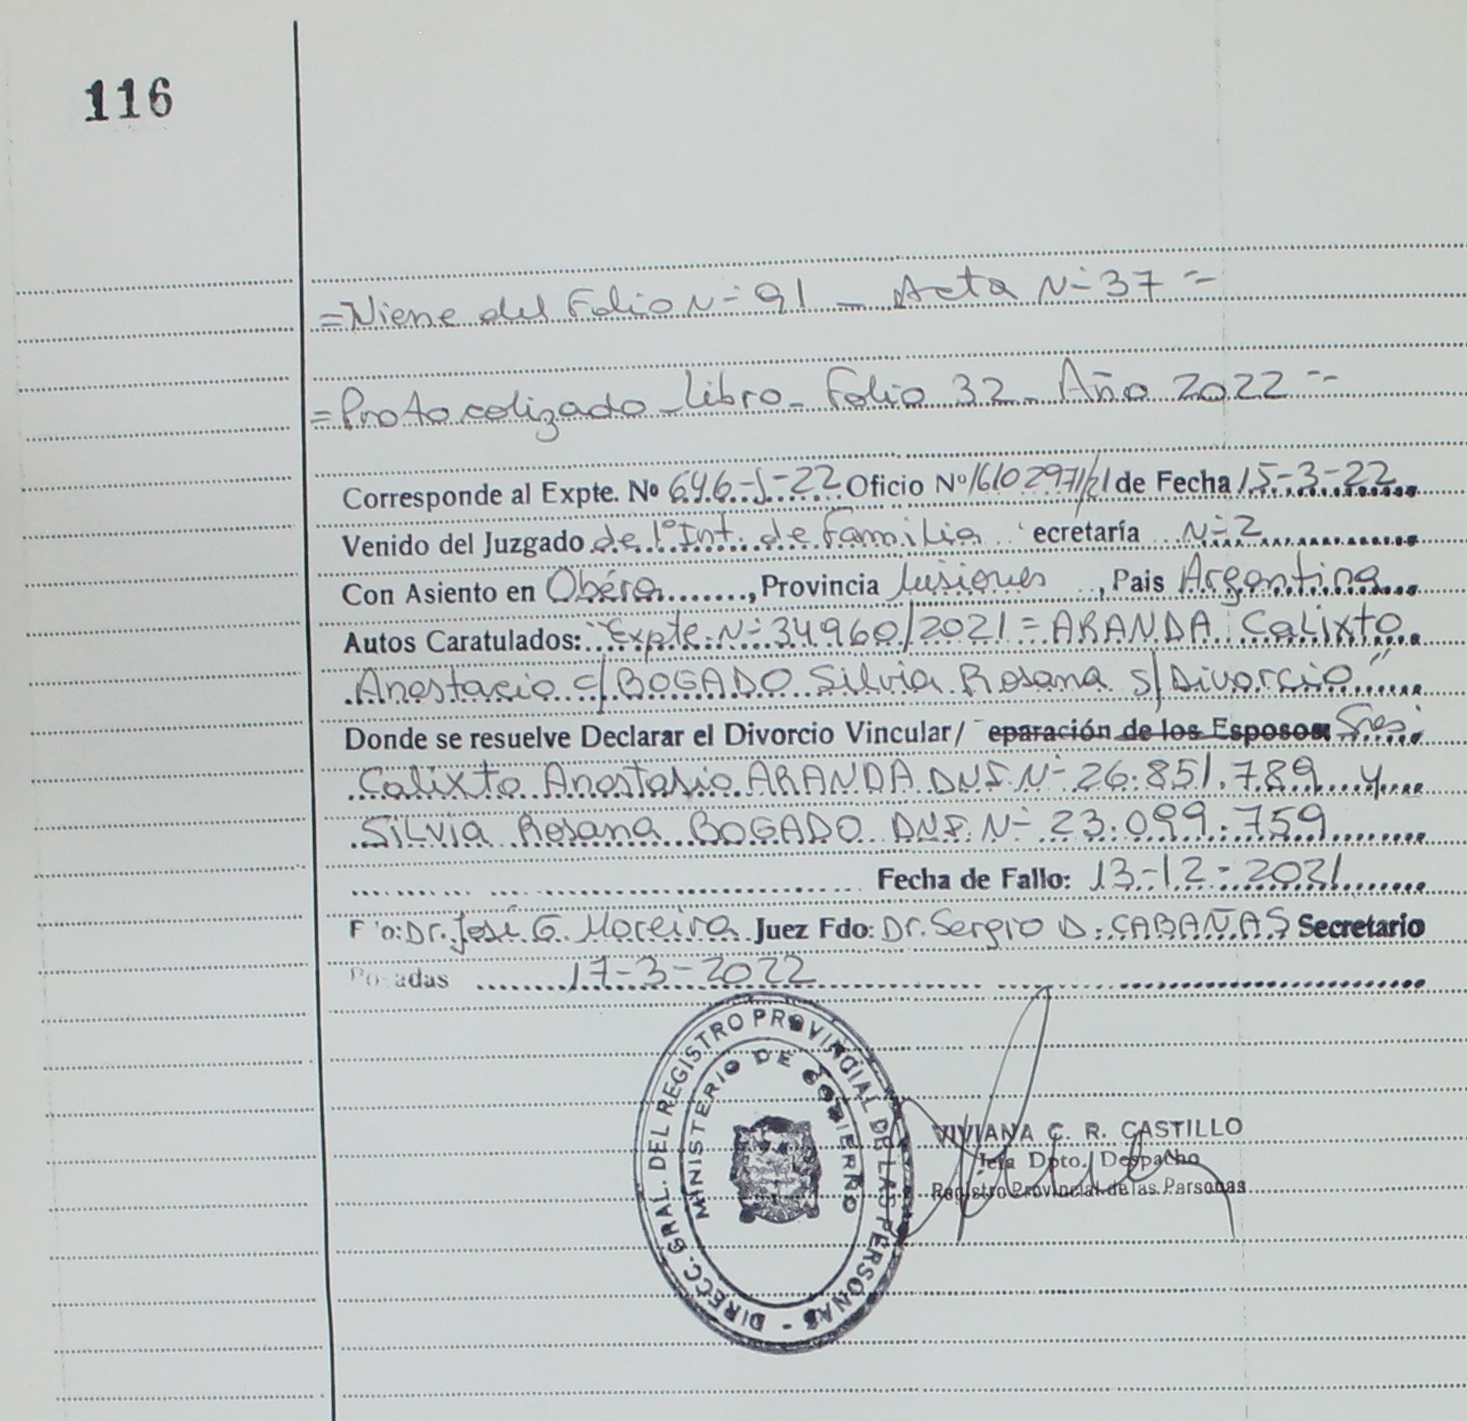 116
=Viene del Folio N- 91 - Acta N- 37 =
=Protocolizado - Libro - Folio 32 - Año 2022 =
Corresponde al Expte. Nº 646-J-22 Oficio Nº de Fecha 15-3-22
Venido del Juzgado de 1º Int. de Familia ecretaría N- 2
Con Asiento en Oberá, Provincia Misiones, Pais Argentina
Autos Caratulados: "Expte. N- 34960/2021 = ARANDA Calixto
Anastacio c/ BOGADO Silvia Rosana s/ Divorcio"
Donde se resuelve Declarar el Divorcio Vincular/ eparación de los Esposos Sres.
Calixto Anastasio ARANDA DNI. N- 26.851.789 y
Silvia Rosana BOGADO DNI. N- 23.099.759
Fecha de Fallo: 13-12-2021
F o: Dr. José G. Moreira Juez Fdo: Dr. Sergio D. CABAÑAS Secretario
Posadas 17-3-2022
DIRECC. GRAL. DEL REGISTRO PROVINCIAL DE LAS PERSONAS -
MINISTERIO DE GOBIERNO
VIVIANA C. R. CASTILLO
Jefa Dpto. Despacho
Registro Provincial de las Personas